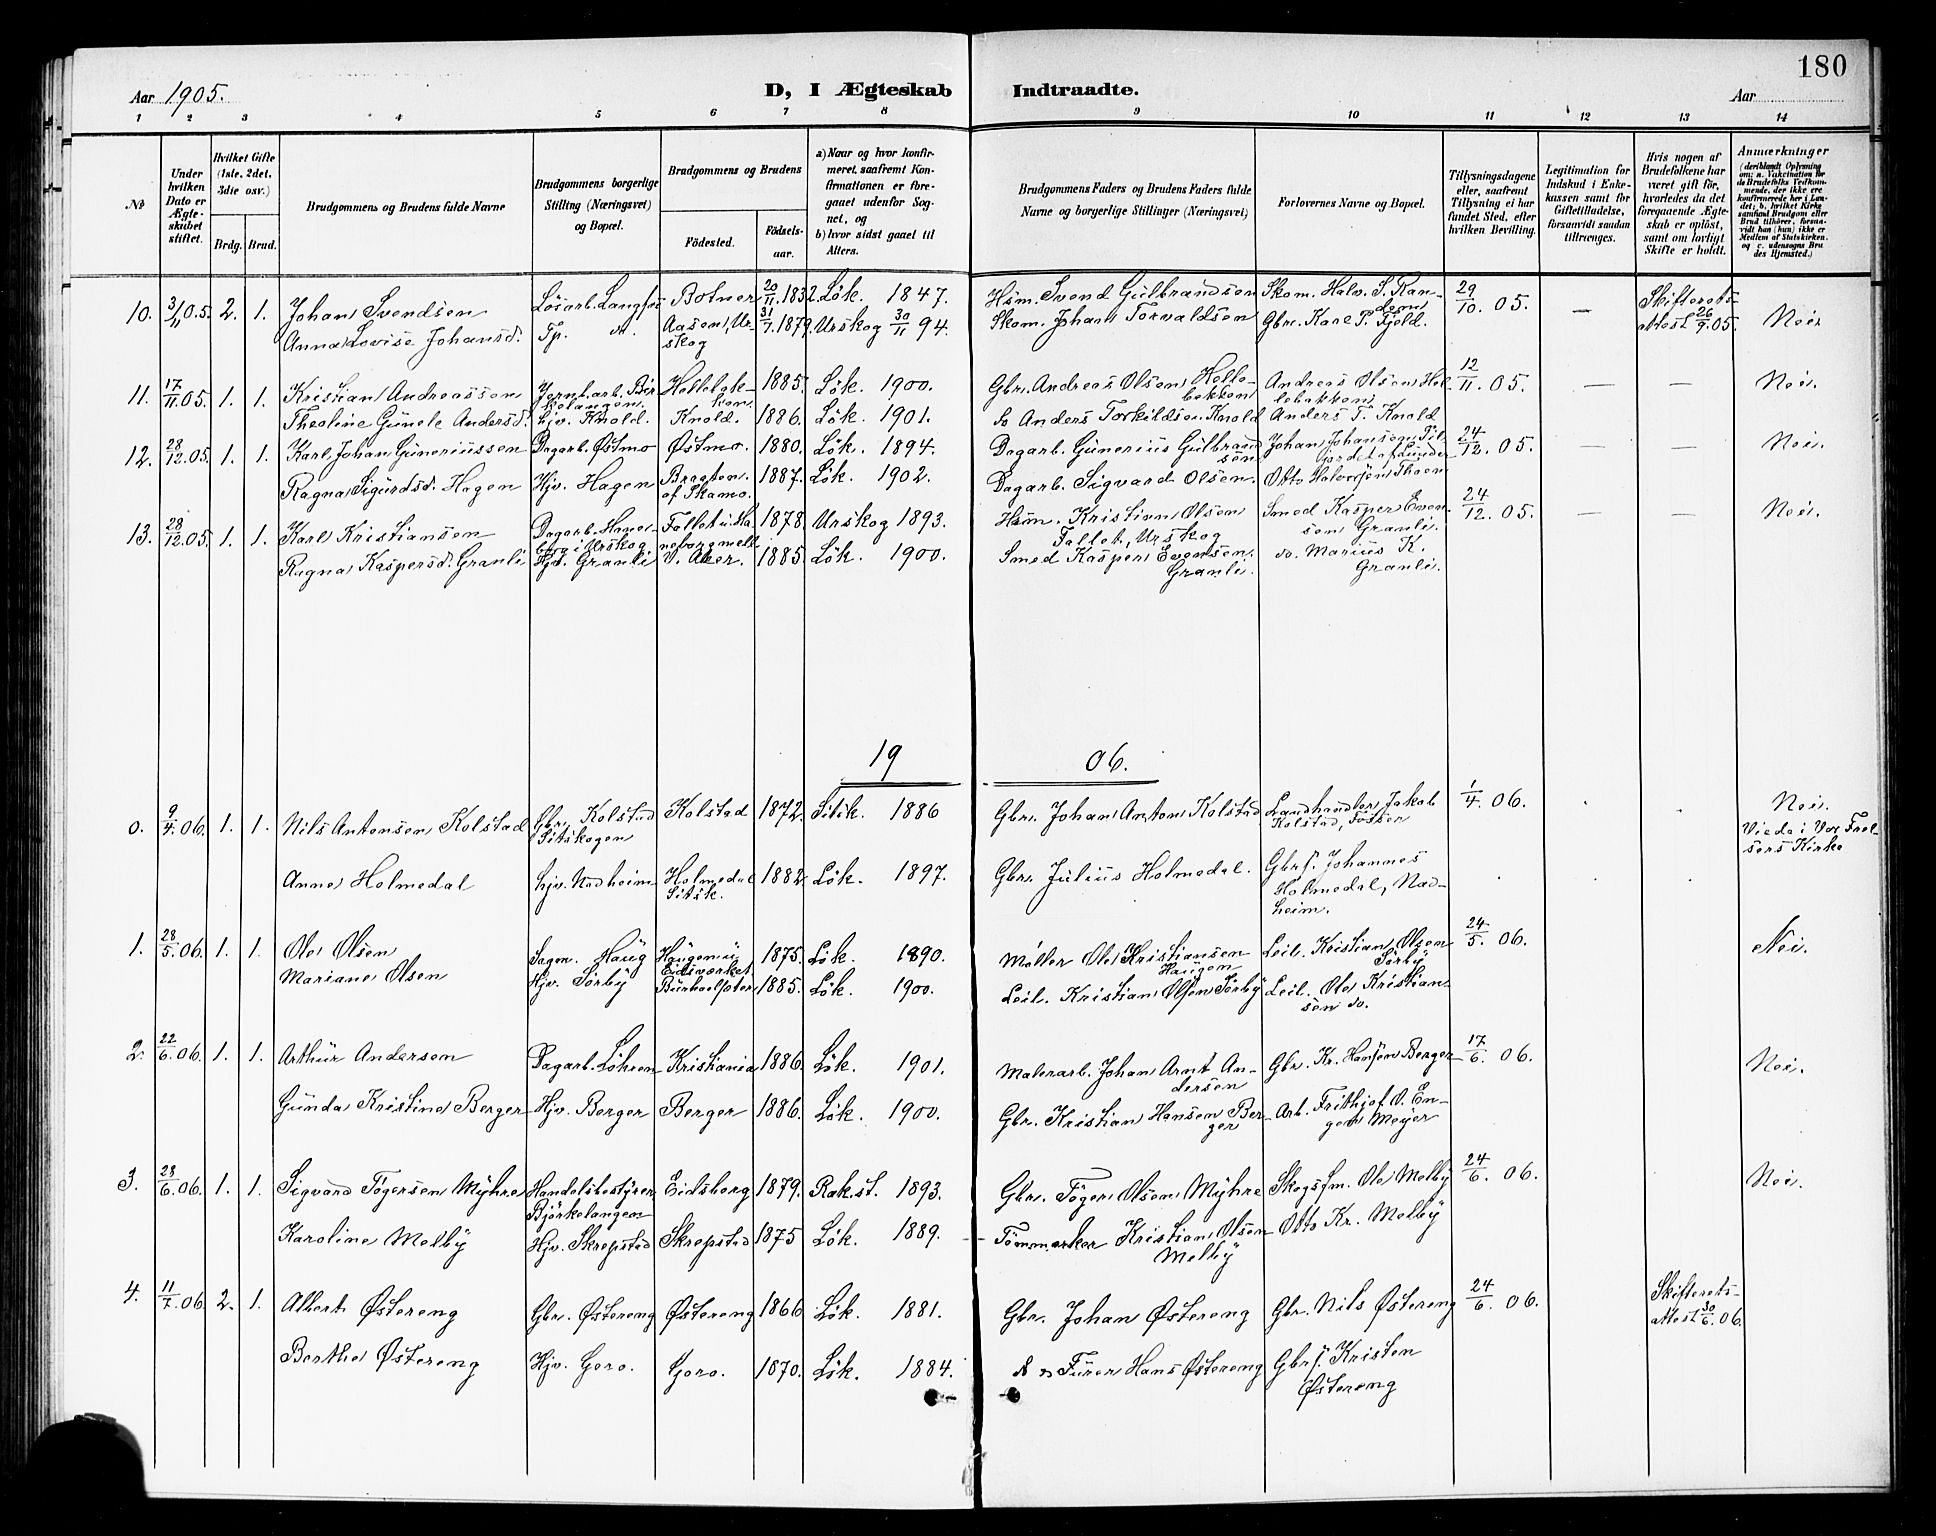 180
Aar 1905.
D, I Ægteskab Indtraadte.
Aar
1 2 3 4 5 6 7 8 9 10 11 12 13 14
№
Under hvilken Dato er Ægteskabet stiftet.
Hvilket Gifte (1ste, 2det, 3die osv.)
Brdg. Brud.
Brudgommens og Brudens fulde Navne
Brudgommens borgerlige Stilling (Næringsvei) og Bopæl.
Brudgommens og Brudens
Fødested.
Fødselsaar.
a) Naar og hvor konfirmeret, saafremt Konfirmationen er foregaaet udenfor Sognet, og
b) hvor sidst gaaet til Alters.
Brudgommens Faders og Brudens Faders fulde Navne og borgerlige Stillinger (Næringsvei)
Forlovernes Navne og Bopæl.
Tillysningsdagene eller, saafremt Tillysning ei har fundet Sted, efter hvilken Bevilling.
Legitimation for Indskud i Enkekassen samt for Giftetilladelse, forsaavidt saadan tiltrænges.
Hvis nogen af Brudefolkene har været gift før, hvorledes da det foregaaende Ægteskab er opløst, samt om lovligt Skifte er holdt.
Anmærkninger (deriblandt Oplysning om: a. Vakcination for de Brudefolks Vedkommende, der ikke ere konfirmerede her i Landet; b. hvilket Kirkesamfund Brudgom eller Brud tilhører, forsaavidt han (hun) ikke er Medlem af Statskirken, og c. udensogns Brudes Hjemsted.)
10. 3/11 05. 2. 1. Johan Svendsen Løsarb. Langfos Botner 20/11. 1832. Løk. 1847. Hsm. Svend Gulbrandsen Skom. Halv. S. Ran- 29/10. 05. — Skifterets-
Anna Lovise Johansd. Tp. Aasen, Ur-skog 31/7. 1879. Urskog 30/11 94. Skom. Johan Torvaldsen Gbr. Karl P. Fjeld. attest 26/9. 05. Nei
11. 17/11. 05. 1. 1. Kristian Andreassen Jernb.arb. Bjørkelangen Hellebæk-ken 1885. Løk. 1900. Gbr. Andreas Olsen Helle-bekken Andreas Olsen Hel-lebækken 12/11. 05. — — Nei.
Theoline Gunele Andersd. Hjv. Knold. Knold. 1886. Løk. 1901. do Anders Torkildsen Knold Anders T. Knold
12. 28/12. 05. 1. 1. Karl Johan Guneriussen Dagarb. Østmo Østmo. 1880. Løk. 1894. Dagarb. Gunerius Gulbrand-sen Johan Johansen 24/12. 05. — — Nei.
Ragna Sigurdsd. Hagen Hjv. Hagen Bragten. af Skamo. 1887. Løk. 1902. Dagarb. Sigvard Olsen. Otto Halvorsen Thoen
13. 28/12. 05. 1. 1. Karl Kristiansen Dagarb. Hane-borg i Urskog Fallet u. Ha-neborg 1878. Urskog 1893. Hsm. Kristian Olsen Fallet, Urskog Smed Kasper Even-sen Granli. 24/12. 05. — — Nei.
Ragna Kaspersd. Granli Hjv. Granli V. Aker. 1885. Løk. 1900. Smed Kasper Evensen. Granli. do. Marius K. Granli.
19 06.
0. 9/4. 06. 1. 1. Nils Antonsen Kolstad Gbr. Kolstad Setskogen Kolstad 1872. Setsk. 1886 Gbr. Johan Anton Kolstad Landhandler Jakob Kolstad, 1/4. 06. Nei. Viede i Vor Frel-sers Kirke
Anne Holmedal Hjv. Nadheim Holmedal Setsk. 1882. Løk. 1897. Gbr. Julius Holmedal. Gbrs. Johannes Holmedal, Nad-heim.
1. 28/5. 06. 1. 1. Ole Olsen Sagm. Haug Haugen u. Eidsverket. 1875. Løk. 1890. Møller Ole Kristiansen Haugen Leil. Kristian Olsen Sørby 24/5. 06. Nei.
Mariane Olsen Hjv. Sørby 1885. Løk. 1900. Leil. Kristian Olsen Sørby Leil. Ole Kristian-sen do.
2. 22/6. 06. 1. 1. Arthur Andersen Dagarb. Løhren Kristiania 1886. Løk. 1901. Malerarb. Johan Arnt An-dersen Gbr. Kr. Hansen Berger 17/6. 06. Nei.
Gunda Kristine Berger Hjv. Berger Berger 1886. Løk. 1900. Gbr. Kristian Hansen Ber-ger Arb. Frithjof O. En-gen Meyer
3. 28/6. 06. 1. 1. Sigvard Tøgersen Myhre Handelsbestyrer Bjørkelangen Eidsberg 1879. Rak.st. 1893. Gbr. Tøger Olsen Myhre Skogsfm. Ole Melby 24/6. 06. Nei.
Karoline Melby Hjv. Skrepstad Skrepstad 1875 Løk. 1889. Tømmerker Kristian Olsen Melby Otto Kr. Melby
4. 11/7. 06. 2. 1. Albert Østereng Gbr. Østereng Østereng 1866 Løk. 1881. Gbr. Johan Østereng Gbr. Nils Østereng 24/6. 06. Skifterets-attest 30/6. 06.
Berthe Østereng Hjv. Goro. Goro. 1870. Løk. 1884. Furer Hans Østereng Gbrs. Kristen Østereng